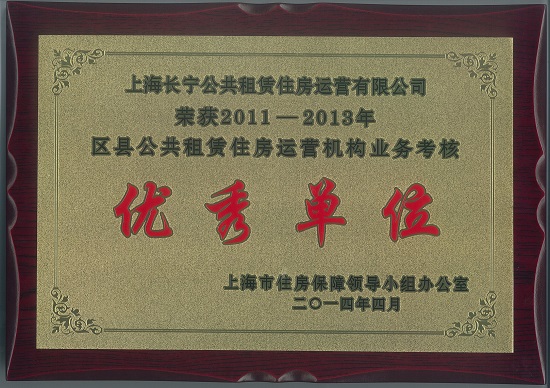 上海长宁公共租赁住房运营有限公司
荣获2011—2013年
区县公共租赁住房运营机构业务考核
优秀单位
上海市住房保障领导小组办公室
二〇一四年四月